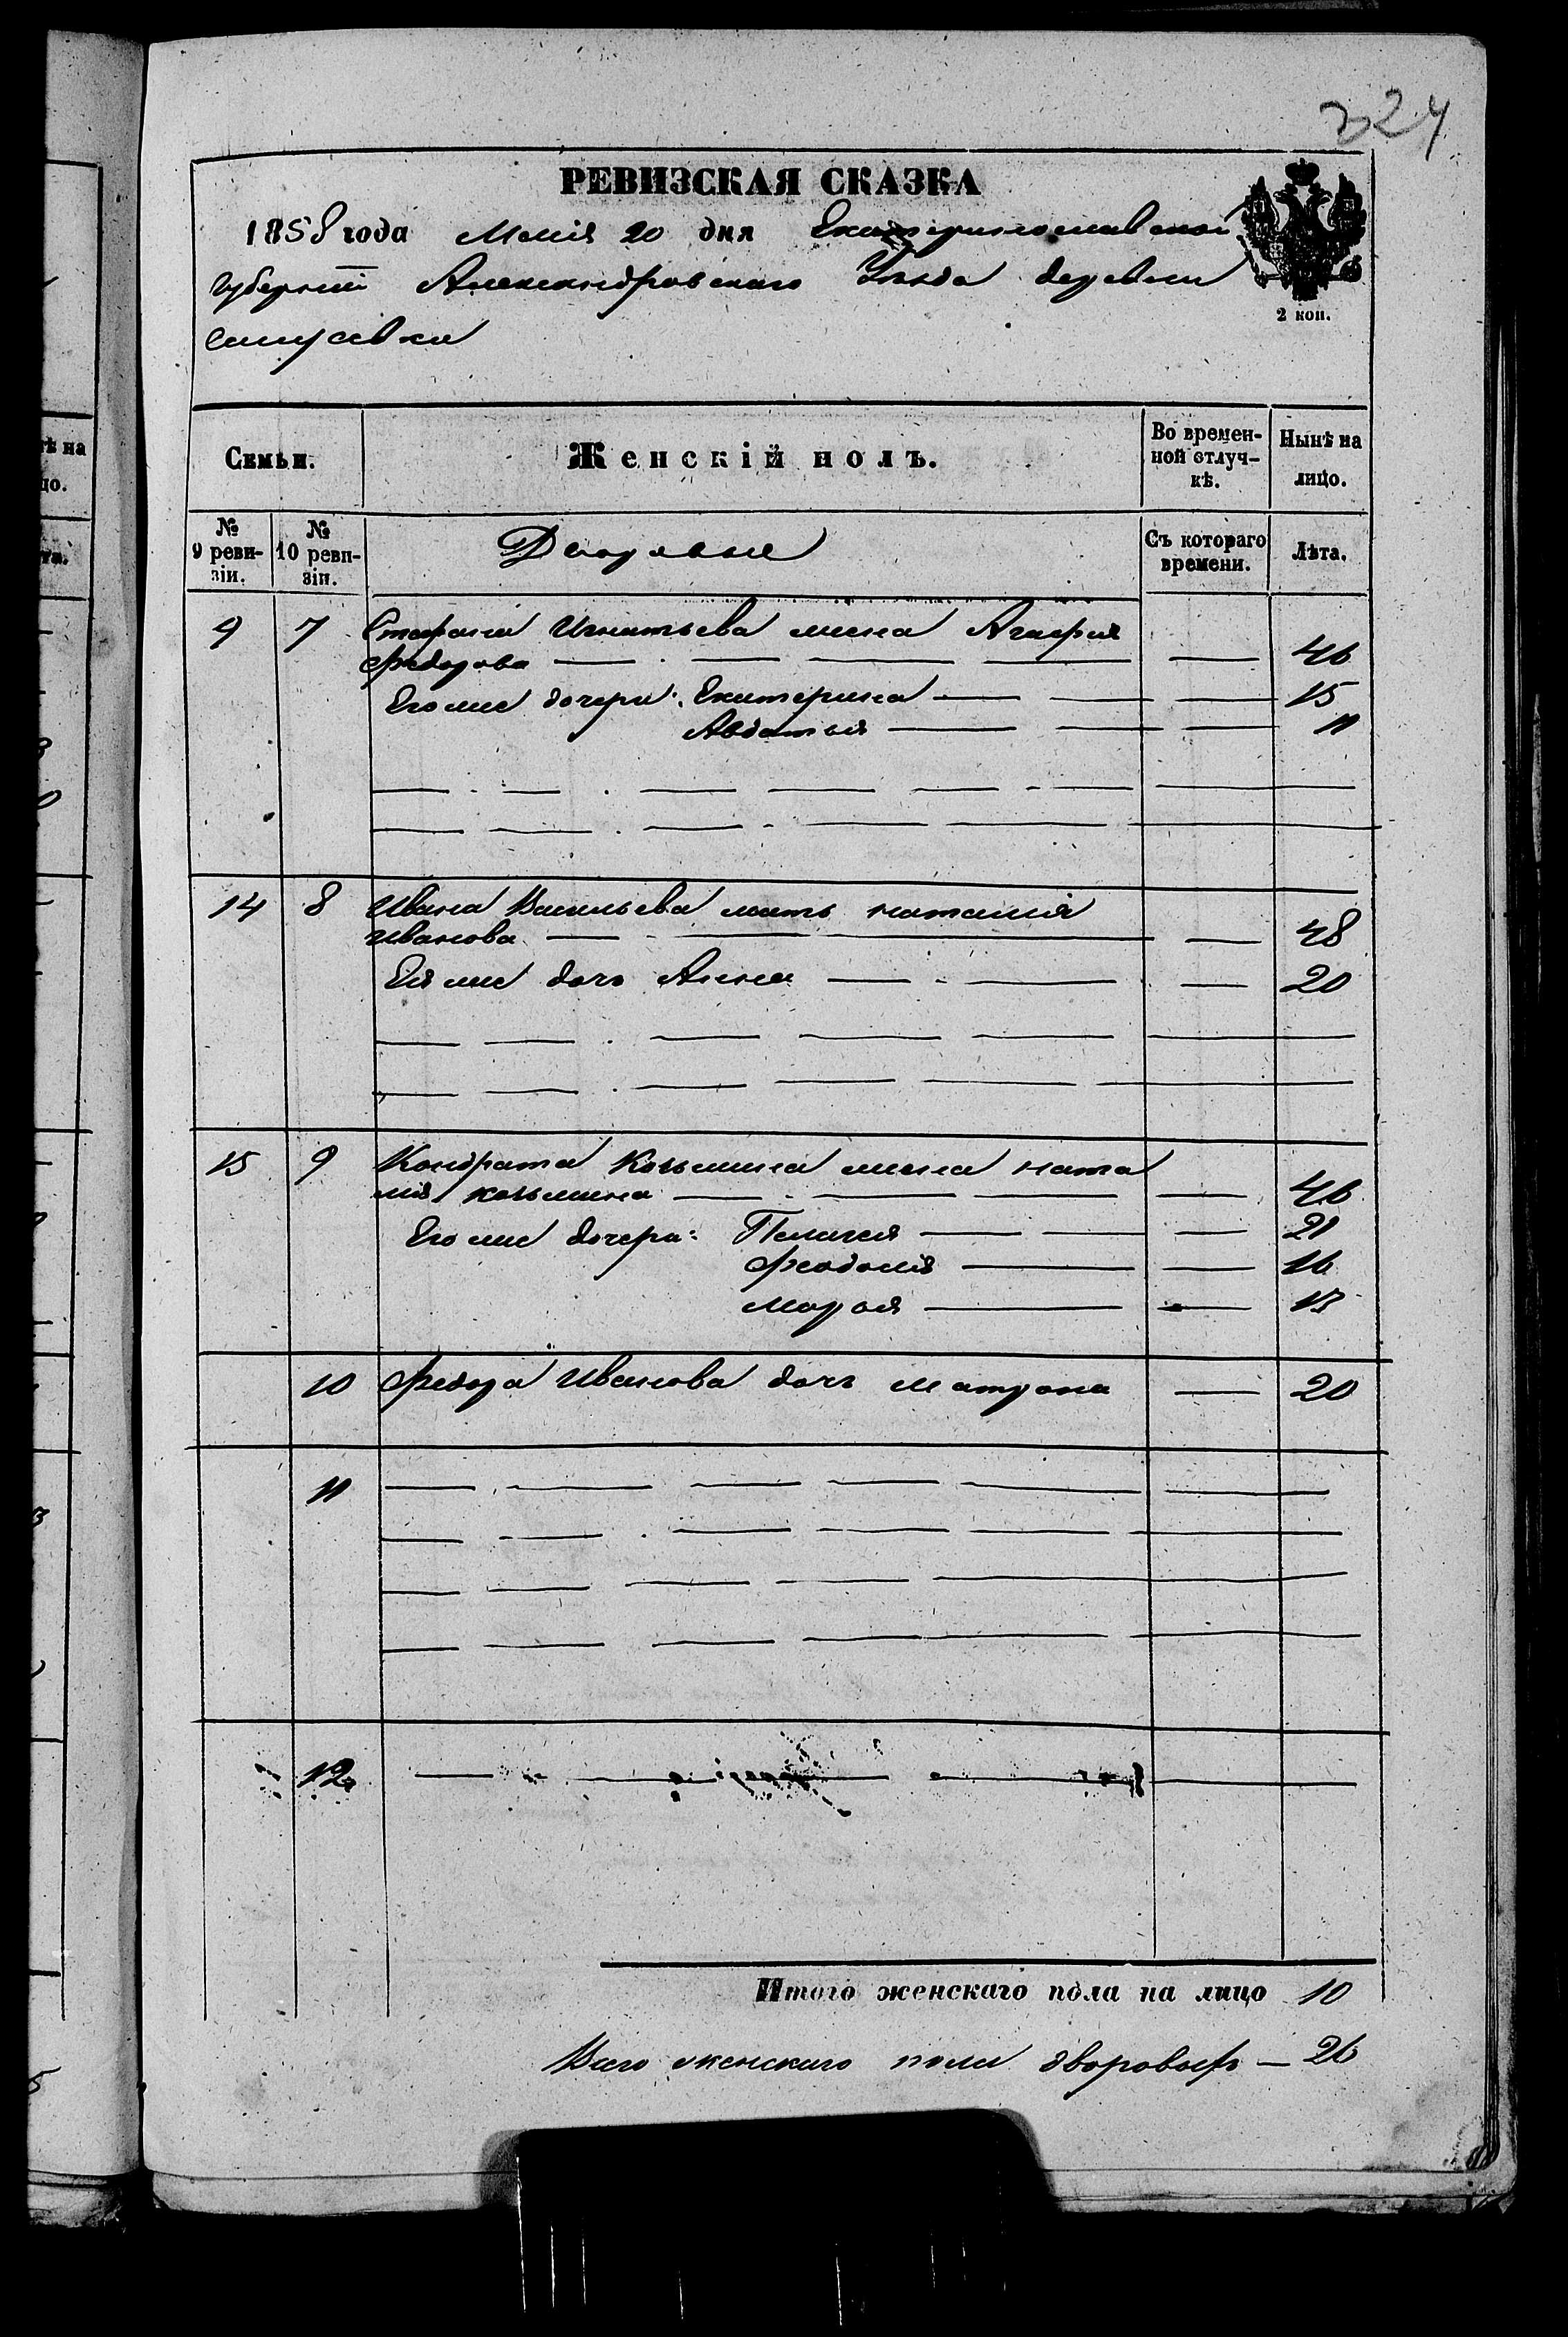 324
РЕВИЗСКАЯ СКАЗКА
1858 года Маія 20 дня Екатеринославской
губерніи Александровскаго Уѣзда деревни
2 коп.
Семьи.
Женскій полъ.
Во времен-
ной отлуч-
кѣ.
Нынѣ на
лицо.
№
9 реви-
зіи.
№
10 реви-
зіи.
Дворовые
Съ котораго
времени.
Лѣта.
9 7 Стефана Игнатьева жена Агафия
Федорова — 46
Его же дочери: Екатерина — 15
Авдотья — 11
14 8 Ивана Васильева мать наталія
Иванова — 48
Ея же дочь Анна — 20
15 9 Кондрата Козьмина жена ната
лія козьмина — 46
Его же дочери: Пелагея — 21
Феодосія — 16
Марья — 13
10 Федора Иванова дочь матрона — 20
11
12
Итого женскаго пола на лицо 10
Всего женскаго пола дворовыхъ — 26